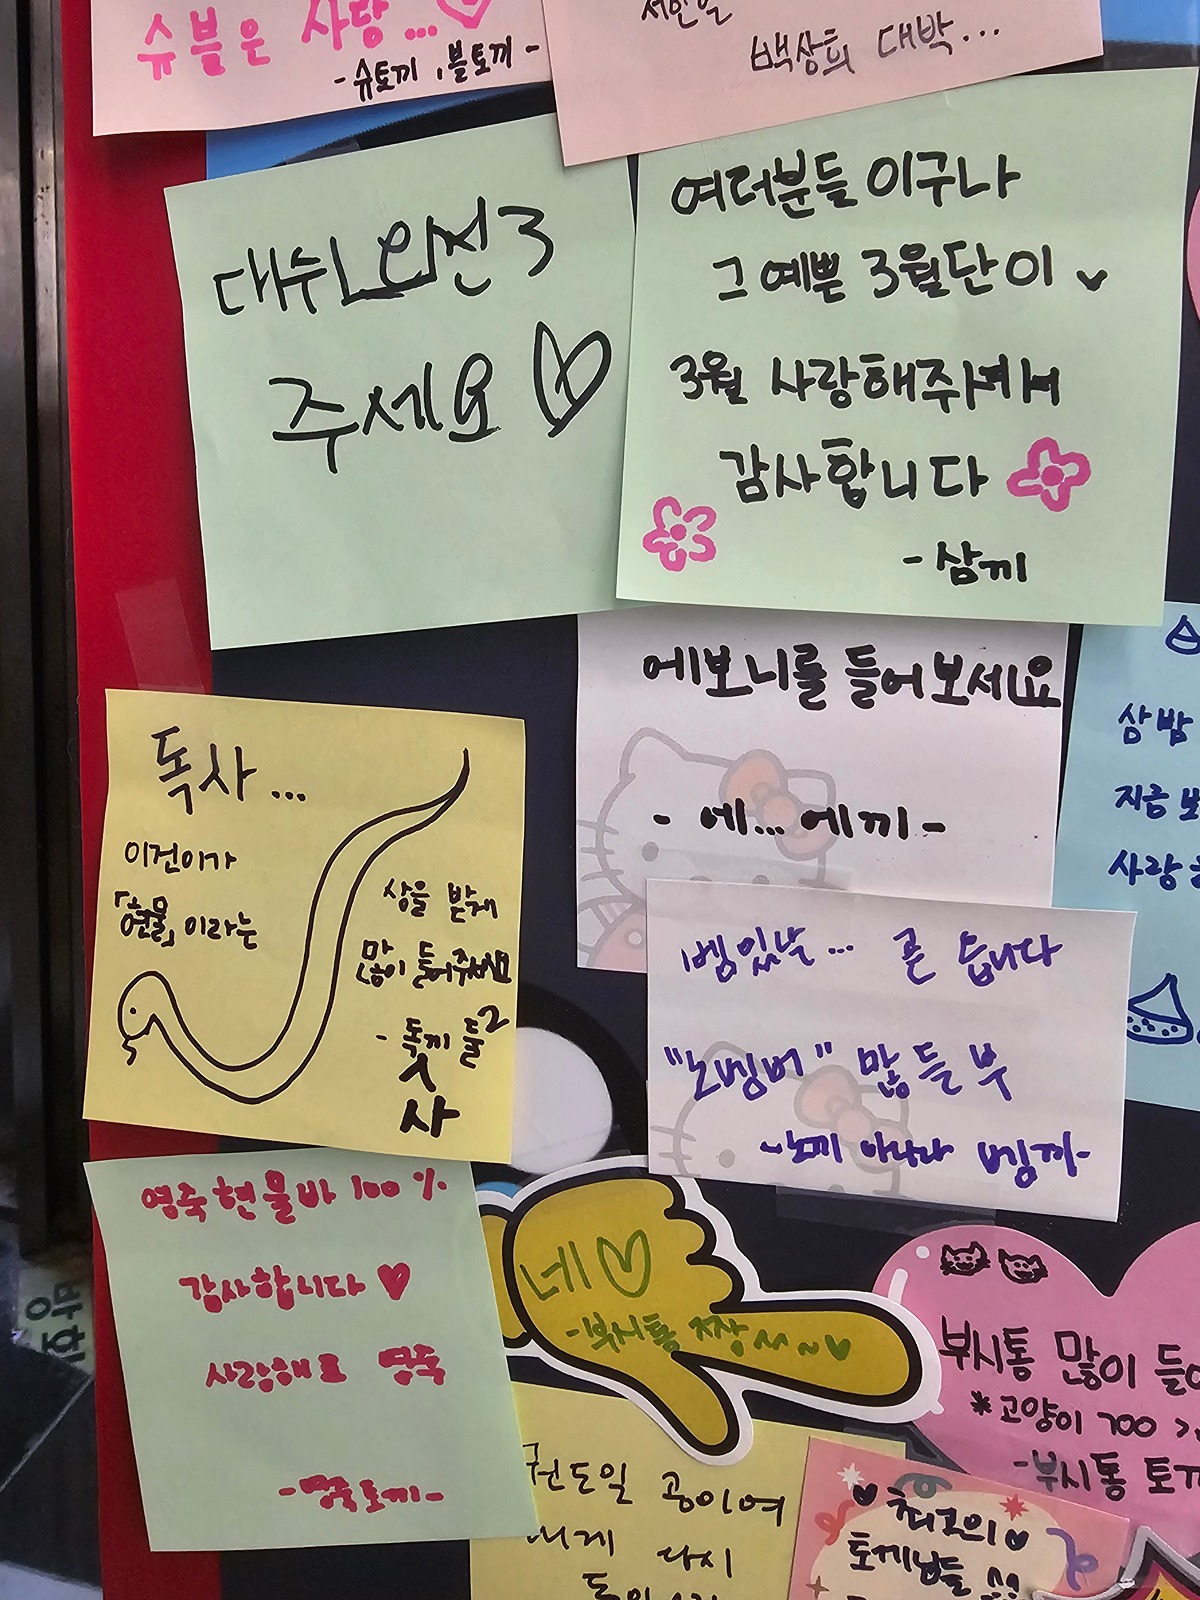 슈블은 사랑...
-슈토끼, 블토끼-
백상희 대박...
대숲 외전3
주세요
여러분들 이구나
그 예쁜 3월단이
3월 사랑해주셔서
감사합니다
-삼끼
에보니를 들어보세요
- 에... 에끼-
독사...
이건이가
「현물」이라는
상을 받게
많이 들어주세요
- 독끼 둘2
사
삼밤
지금
사랑
벰있날... 곧 듭니다
"노벰버" 많 들 부
-노끼 아니라 벰끼-
영죽현물바 100%
감사합니다
사랑해요 영죽
-영죽토끼-
네
-부시통 짱
부시통 많이
*고양이 700
-부시통
권도일 공이여
다시
최고의
토끼님들